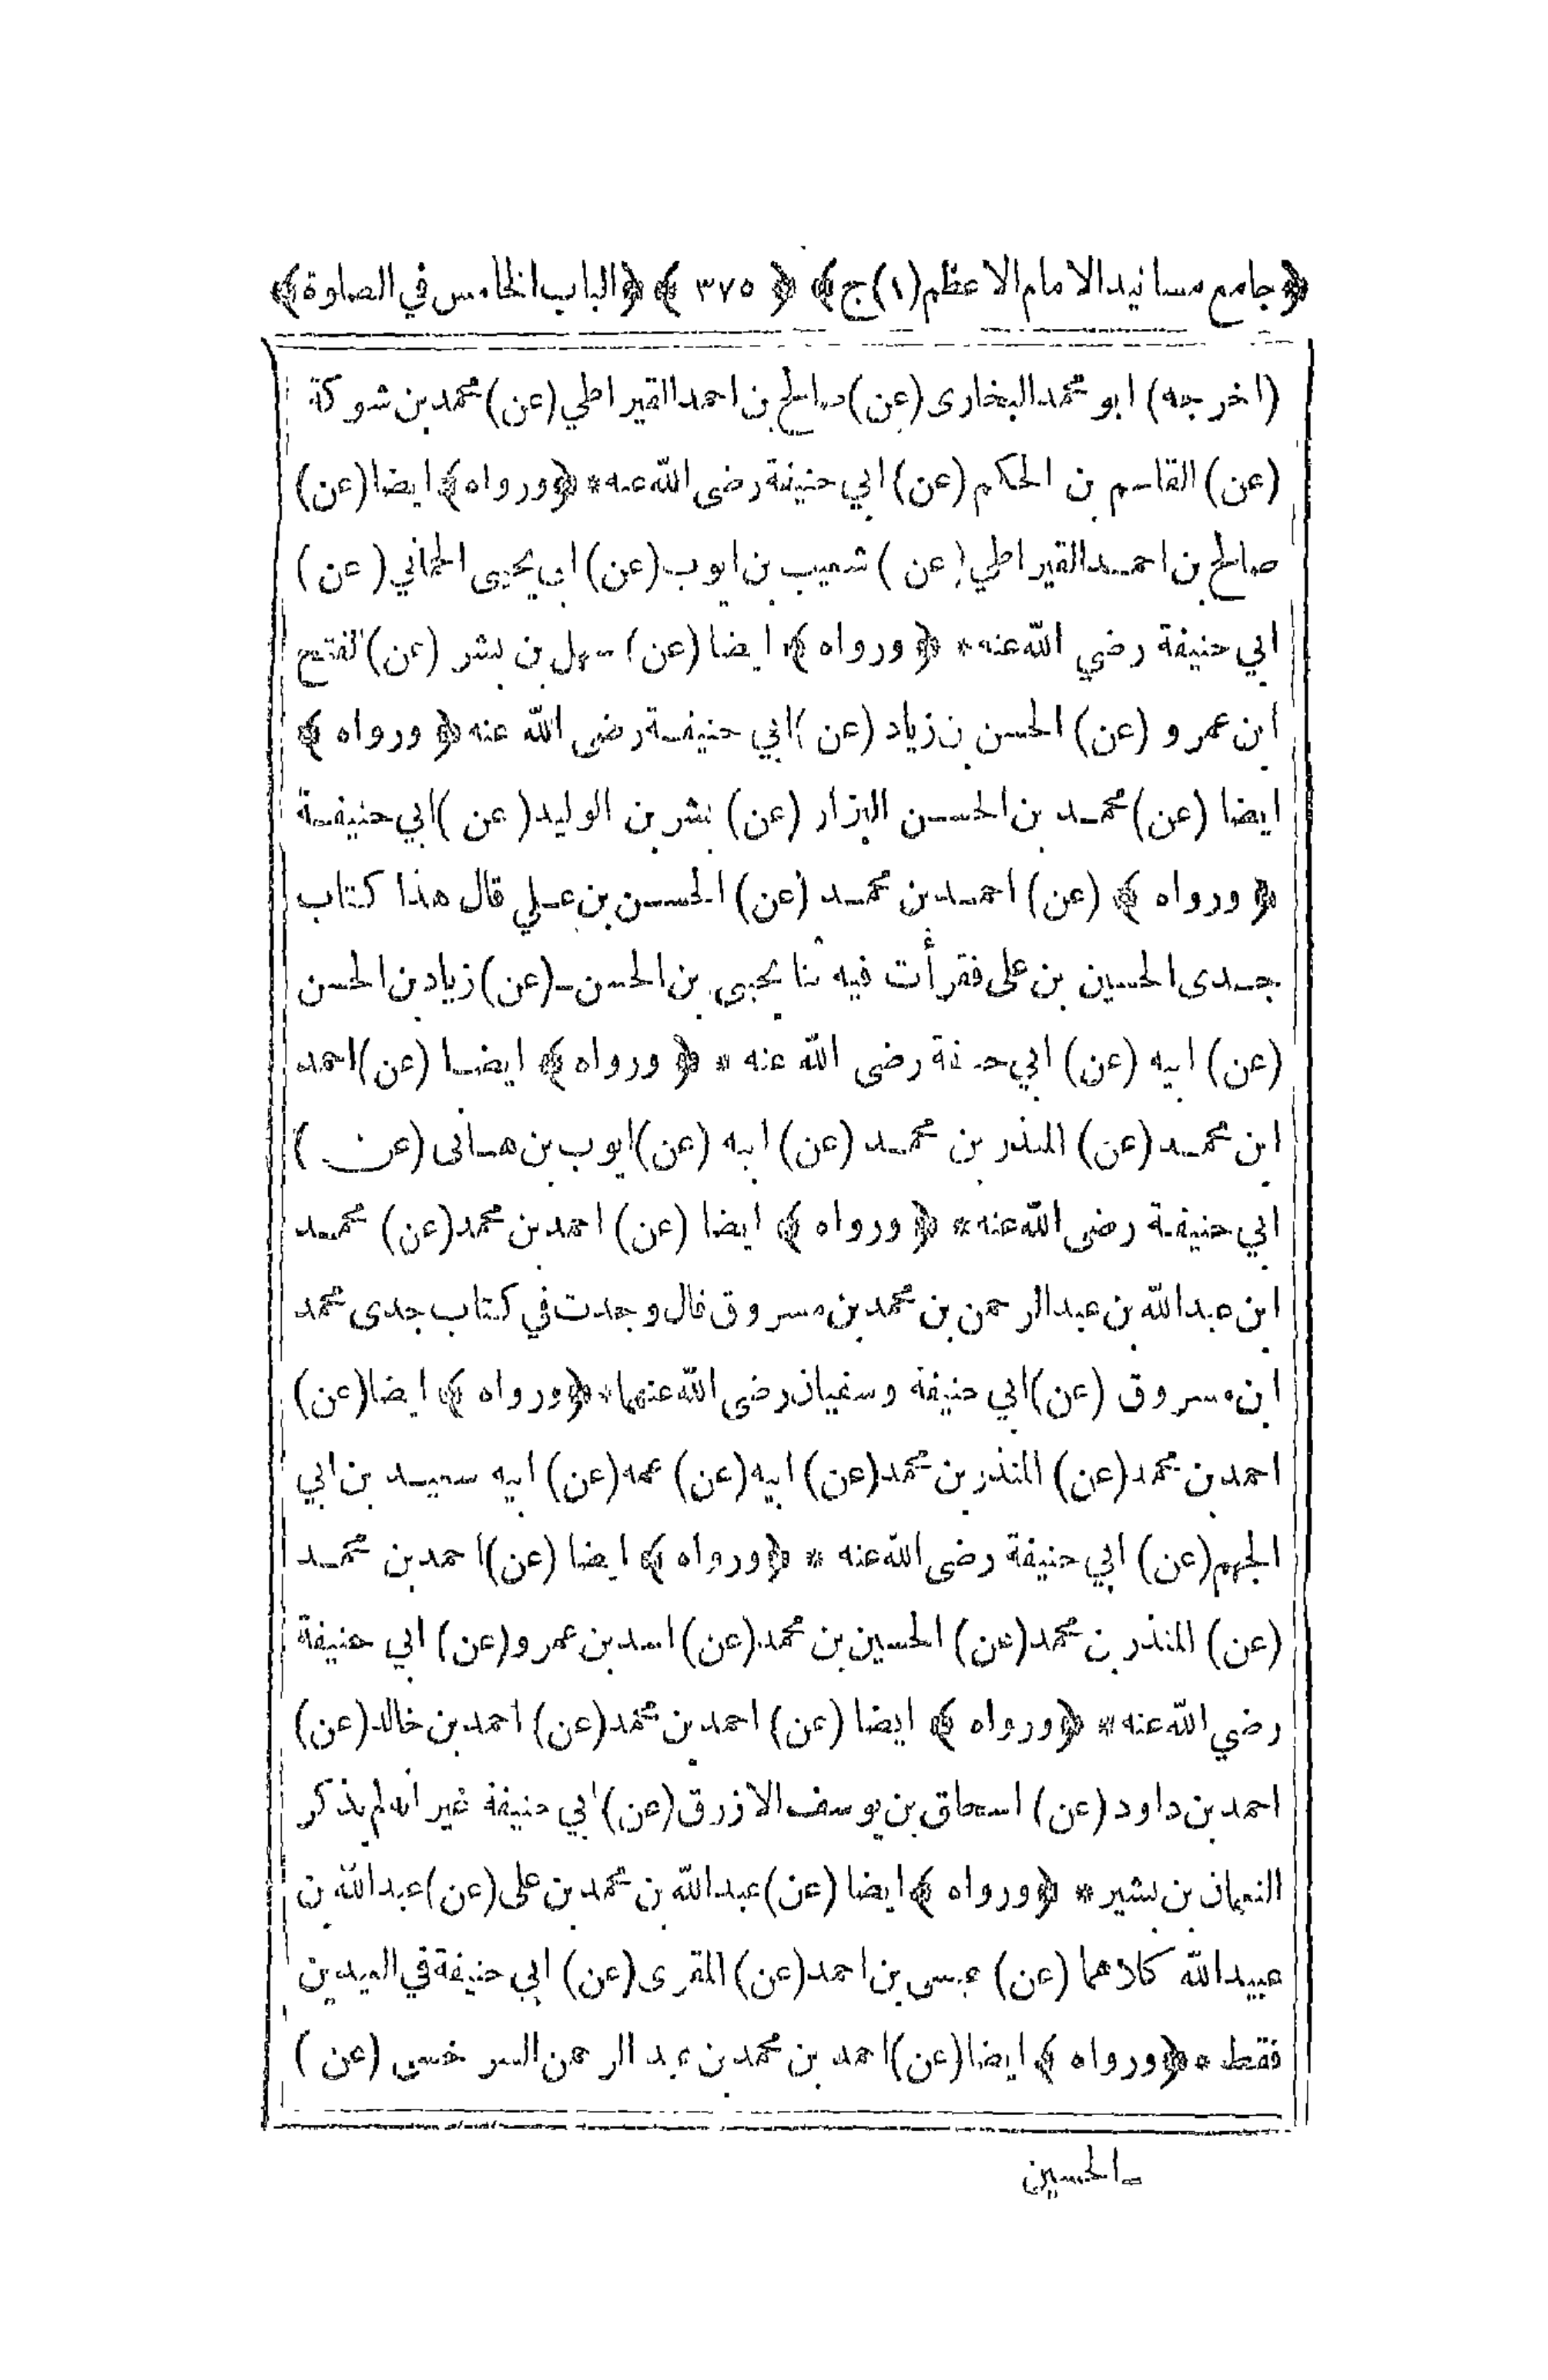 ﴿جامع مسانيد الامام الاعظم (١) ج﴾ ﴿ ٣٧٥ ﴾ ﴿الباب الخامس في الصلوة﴾
(اخرجه) ابو محمد البخارى (عن) صالح بن احمد القيراطي (عن) محمد بن شوكة
(عن) القاسم بن الحكم (عن) ابي حنيفة رضى الله عنه * ﴿ورواه﴾ ايضا (عن)
صالح بن احمد القيراطي (عن) شعيب بن ايوب (عن) ابي يحيى الحماني (عن)
ابي حنيفة رضي الله عنه * ﴿ورواه﴾ ايضا (عن) سهل بن بشر (عن) الفتح
ابن عمرو (عن) الحسن بن زياد (عن) ابي حنيفة رضى الله عنه ﴿ورواه﴾
ايضا (عن) محمد بن الحسن البزار (عن) بشر بن الوليد (عن) ابي حنيفة
﴿ورواه﴾ (عن) احمد بن محمد (عن) الحسن بن علي قال هذا كتاب
جدى الحسين بن على فقرأت فيه ثنا يحيى بن الحسن (عن) زياد بن الحسن
(عن) ابيه (عن) ابي حنيفة رضى الله عنه * ﴿ورواه﴾ ايضا (عن) احمد
ابن محمد (عن) المنذر بن محمد (عن) ابيه (عن) ايوب بن هانى (عن)
ابي حنيفة رضى الله عنه * ﴿ورواه﴾ ايضا (عن) احمد بن محمد (عن) محمد
ابن عبد الله بن عبد الرحمن بن محمد بن مسروق قال وجدت في كتاب جدى محمد
ابن مسروق (عن) ابي حنيفة وسفيان رضى الله عنهما * ﴿ورواه﴾ ايضا (عن)
احمد بن محمد (عن) المنذر بن محمد (عن) ابيه (عن) عمه (عن) ابيه سعيد بن ابي
الجهم (عن) ابي حنيفة رضى الله عنه * ﴿ورواه﴾ ايضا (عن) احمد بن محمد
(عن) المنذر بن محمد (عن) الحسين بن محمد (عن) اسد بن عمرو (عن) ابي حنيفة
رضي الله عنه * ﴿ورواه﴾ ايضا (عن) احمد بن محمد (عن) احمد بن خالد (عن)
احمد بن داود (عن) اسحاق بن يوسف الازرق (عن) ابي حنيفة غير انه لم يذكر
النعمان بن بشير * ﴿ورواه﴾ ايضا (عن) عبد الله بن محمد بن على (عن) عبد الله بن
عبيد الله كلاهما (عن) عيسى بن احمد (عن) المقرى (عن) ابي حنيفة في العيدين
فقط * ﴿ورواه﴾ ايضا (عن) احمد بن محمد بن عبد الرحمن السرخسى (عن)
ـ الحسين